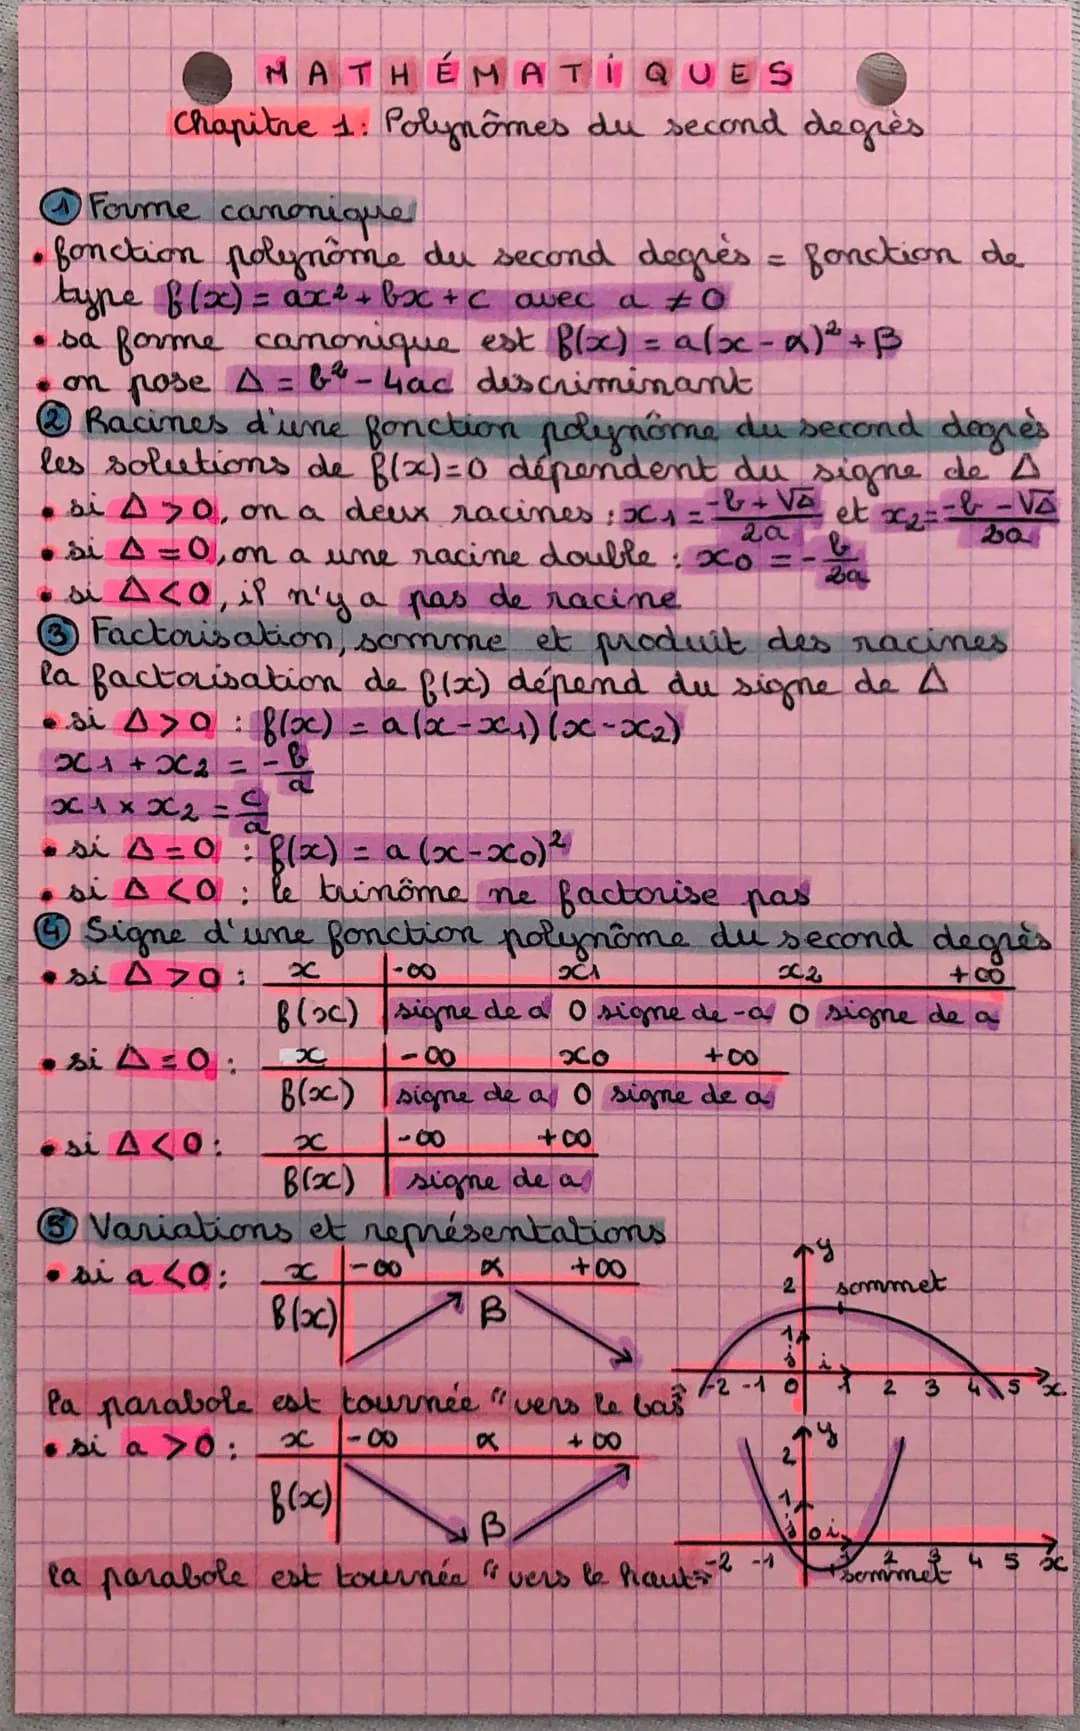 MATHÉMATIQUES
Chapitre 1: Polynômes du second degrès
① Forme canonique
• fonction polynôme du second degrès = fonction de
type f(x) = ax² + bx + c avec a ≠ 0
• sa forme canonique est f(x) = a(x - α)² + β
• on pose Δ = b² - 4ac descriminant
② Racines d'une fonction polynôme du second degrès
les solutions de f(x)=0 dépendent du signe de Δ
• si Δ > 0, on a deux racines : x₁ = (-b + √Δ)/2a et x₂ = (-b - √Δ)/2a
• si Δ = 0, on a une racine double : x₀ = -b/2a
• si Δ < 0, il n'y a pas de racine
③ Factorisation, somme et produit des racines
la factorisation de f(x) dépend du signe de Δ
• si Δ > 0 : f(x) = a(x - x₁)(x - x₂)
x₁ + x₂ = -b/a
x₁ × x₂ = c/a
• si Δ = 0 : f(x) = a (x - x₀)²
• si Δ < 0 : le trinôme ne factorise pas
④ Signe d'une fonction polynôme du second degrès
• si Δ > 0 : x -∞ x₁ x₂ +∞
f(x) signe de a 0 signe de -a 0 signe de a
• si Δ = 0 : x -∞ x₀ +∞
f(x) signe de a 0 signe de a
• si Δ < 0 : x -∞ +∞
f(x) signe de a
⑤ Variations et représentations
• si a < 0 : x -∞ α +∞
f(x) β
y
2 sommet
1
j i
-2 -1 0 1 2 3 4 5 x
la parabole est tournée "vers le bas"
• si a > 0 : x -∞ α +∞
f(x) β
y
2
1
j 0 i
-2 -1 1 2 3 4 5 x
sommet
la parabole est tournée "vers le haut"